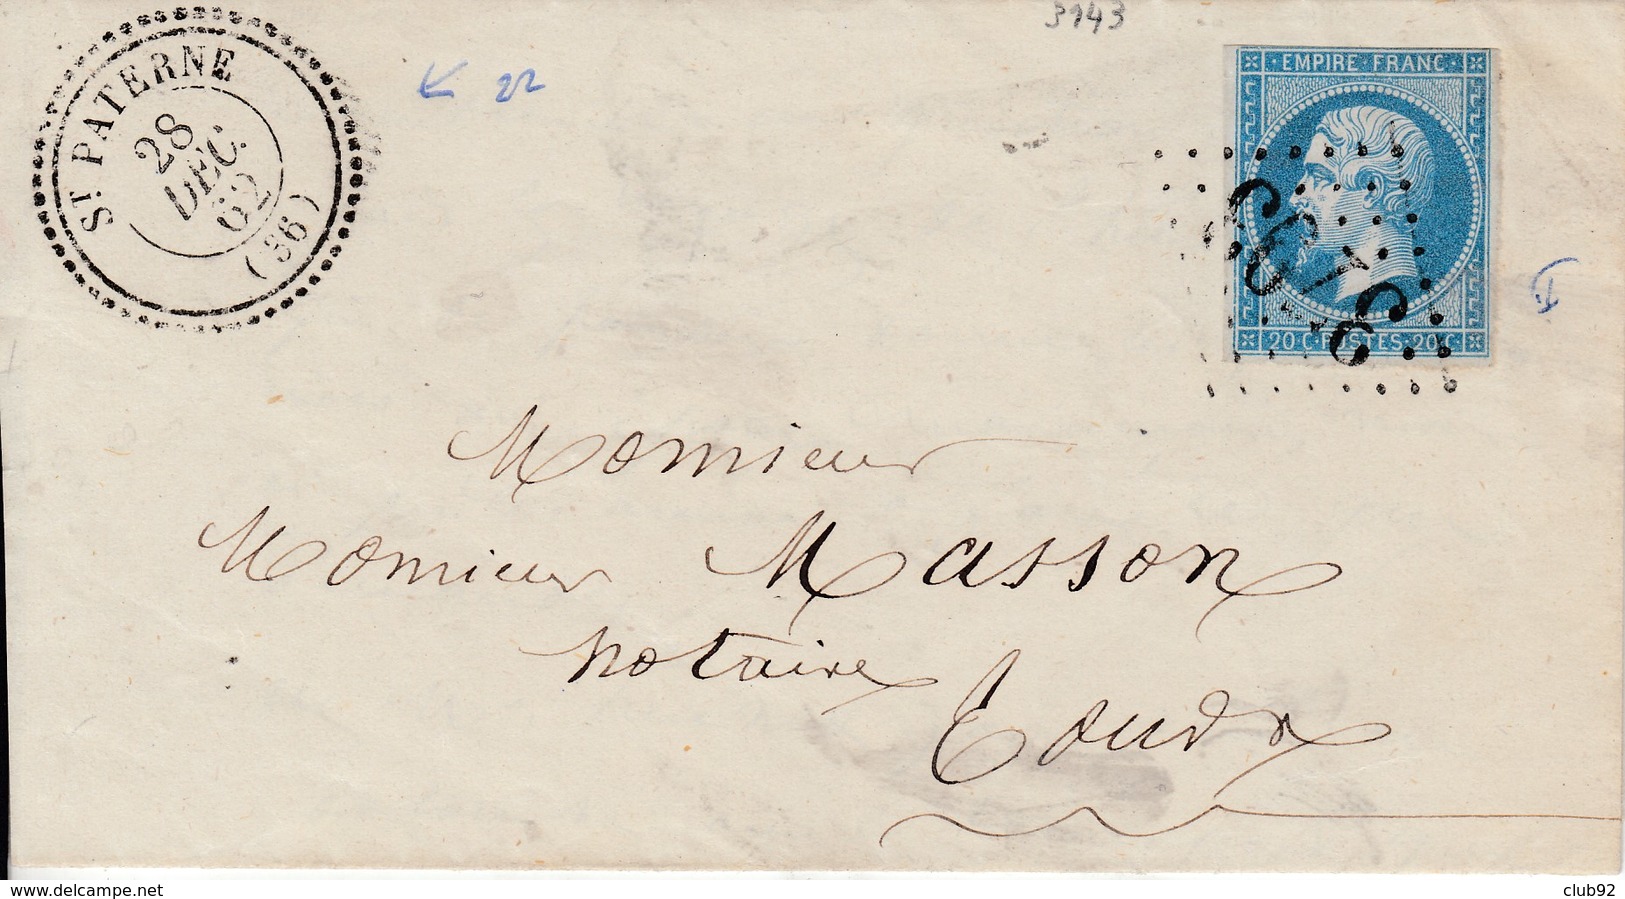 3143
ST. PATERNE
28
DEC.
62
(36)
22
EMPIRE FRANC
20 C. POSTES 20 C
3143
I
Monsieur
Monsieur Masson
notaire
www.delcampe.net
club92